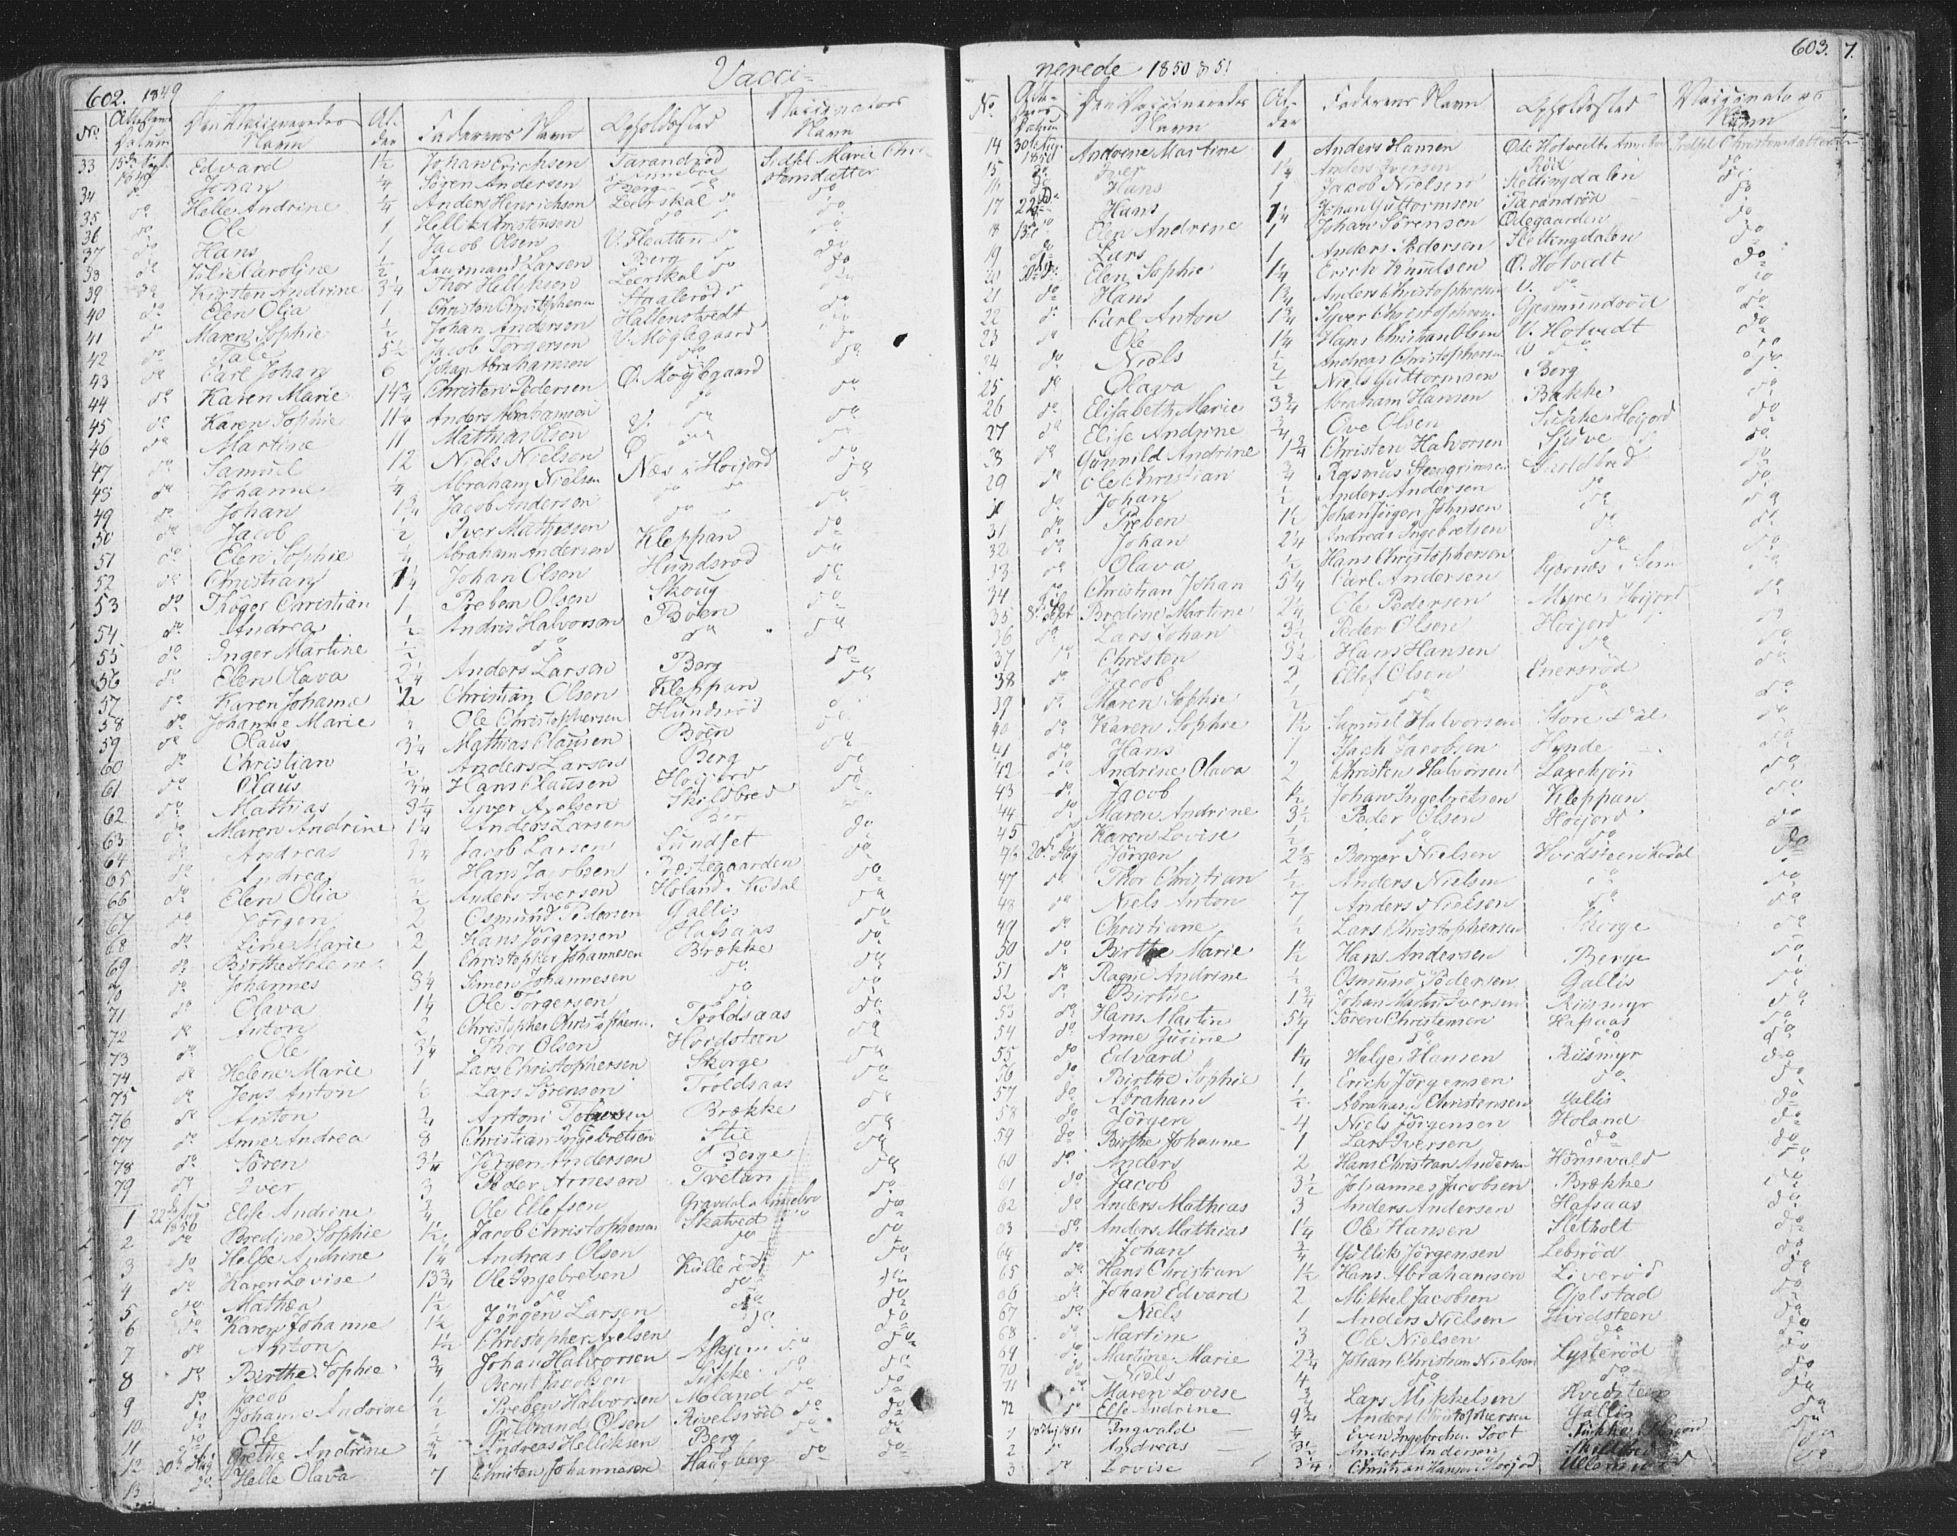 602. 1849 Vacci-
No. Attestens Datum Den Vaccineredes Navn Alder Faderens Navn Opholdssted Vaccinators Navn
33 15de Sept. 1849 Edvard 1½ Johan Erichsen Tarandrød Sidsel Marie Chri-
34 do Johan ¼ Søren Andersen Berg do stensdatter
35 do Helle Andrine ¼ Anders Henrichsen Leerskal do do
36 do Ole 1 Hellik Christensen do do
37 do Hans 1 Jacob Olsen V. Fleatten do
38 do Julie Caroline ½ Laurmand Larsen Berg do
39 do Kirsten Andrine 3¼ Thor Helliksen Leerskal do do
40 do Elen Olia 1 Christen Christophersen Staalerød do
41 do Maren Sophie Johan Andersen Haltenstvedt do
42 do Tale 5½ Jacob Torgersen V. Møglegaard do
43 do Carl Johan 6 Johan Abrahamsen do do
44 do Karen Marie 14¾ Christen Pedersen Ø. Møglegaard do
45 do Karen Sophie 11¼ Anders Abrahamsen do do
46 do Martine 11 Mathias Olsen V. do do
47 do Samuel 12 Niels Nielsen Ø do do
48 do Johanne ¼ Abraham Nielsen Næs i Høijord do
49 do Johan 1¾ Jacob Andersen do do
50 do Jacob ½ Iver Mathesen do do
51 do Elen Sophie Abraham Andersen Kleppan do
52 do Christian 1¼ Johan Olsen Hundsrød do
53 do Thøger Christian 1 Preben Olsen Skoug do
54 do Andrea ½ Andris Halvorsen Bøen do
55 do Inger Martine ½ do do do
56 do Elen Olava 2¼ Anders Larsen Berg do
57 do Karen Johanne ½ Christian Olsen Kleppan do
58 do Johanne Marie Ole Christophersen Hundsrød do
59 do Olaus 3¼ Mathias Clausen Bøen do
60 do Christian ½ Anders Larsen Berg do
61 do Olaus ¾ Hans Clausen Høijord do
62 do Mathias 3¼ Iver Axelsen Skildbred do
63 do Maren Andrine 1¼ Anders Larsen do
64 do Andreas Jacob Larsen Sundset do
65 do Andrea Hans Jacobsen Prestegaarden do
66 do Elen Olia ½ Anders Iversen Holand i Kodal do
67 do Jørgen 2 Osmund Pedersen Gallis do
68 do Line Marie 2 Hans Jørgensen Hafsaas do
69 do Birthe Helene 1 Christopher Johannesen Brække do
70 do Johannes 8¼ Simen Johannesen do do
71 do Olava 1¼ Ole Torgersen do do
72 do Anton 2 Christopher Christophersen Troldsaas do
73 do Ole 3¼ Thor Olsen Hvidsteen do
74 do Helene Marie 1 Lars Christophersen Skorge do
75 do Jens Anton Lars Sørensen Troldsaas do
76 do Anton Antoni Brække do
77 do Anne Andrea 8 Christian Ingebretsen Stie do
78 do Søren 3¼ Jørgen Andersen Berge do
79 do Iver 3 Peder Arnesen Tvetan do
1 22de Aug 1850 Elise Andrine ¾ Ole Ellefsen Gravdal i Annebo do
2 do Bredine Sophie Jacob Christophersen Skatved do
3 do Helle Andrine 1¼ Andreas Olsen do do
4 do Karen Lovise 13¾ Ole Ingebretsen Kullerød do
5 do Mathea 1½ do do do
6 do Karen Johanne 1½ Jørgen Larsen do do
7 do Anton 1½ Christopher Axelsen do do
8 do Birthe Sophie ¾ Johan Halvorsen Askjem do do
9 do Jacob Bernt Jacobsen Sukke do do
10 do Johanne Andrine ½ Preben Halvorsen Moland do do
11 do Ole Gulbrand Olsen Rivelsrød do do
12 30te Aug Grethe Andrine ¾ Andreas Helliksen Berg do do
13 do Helle Olava 7 Christen Johannesen Haugberg do do
603. 7.
nerede 1850 & 51
No. Attestens Datum Den Vaccineredes Navn Alder Faderens Navn Opholdssted Vaccinators Navn
14 30te Aug. 1850 Andrine Martine 1 Anders Hansen Øde Hotvedt i Annebo Sidsel Christensdatter
15 do Iver 1¼ Anders Iversen Rød do
16 do Hans 1 Jacob Nielsen Steltingdalen do
17 22de do Hans 1¼ Johan Guttormsen Tarandrød do
18 13de Elen Andrine 1 Johan Sørensen Ødegaarden do
19 do Lars 1 Anders Pedersen Steltingdalen do
20 do Elen Sophie 1¼ Erich Knudsen Ø. Hotvedt do
21 do Hans 1¾ Anders Christophersen V. do do
22 do Carl Anton 1¾ Syver Christophersen Gremundrød do
23 do Ole 1¼ Hans Christian Olsen V. Hotvedt do
24 do Niels ½ Andreas Christophersen V. do
25 do Olava ½ Niels Guttormsen Berg do
26 do Elisabeth Marie 3¾ Abraham Hansen Bakke do
27 do Elise Andrine ¾ Ove Olsen Sukke i Høijord do
28 do Gunnild Andrine 1¾ Christen Halvorsen Stuve do
29 do Ole Christian ¾ Rasmus Steengrimsen Skoldbred do
30 do Johan ½ Anders Andersen do do
31 do Preben 1½ Johan Jørgen Johnsen do do
32 do Johan 2¼ Andreas Ingebretsen do do
33 do Olava ½ Hans Christophersen do do
34 do Christian Johan 5¼ Carl Andersen Gjernæs i Sem do
35 8. Sept Bredine Martine 2¼ Ole Pedersen Myre i Høijord do
36 do Lars Johan 3½ Peder Olsen Høijord do
37 do Christen 3½ Hans Hansen do do
38 do Jacob 2 Edlef Olsen Enersrød do
39 do Maren Sophie ½ do do do
40 do Karen Sophie 1½ Samuel Halvorsen Store Dal do
41 do Hans 1 Isach Jacobsen Hynde do
42 do Andrine Olava 2 Christen Halvorsen Laxekjøn do
43 do Jacob 1½ Johan Ingebretsen Kleppan do
44 do Maren Andrine 3½ Peder Olsen Høijord do
45 do Karen Lovise ½ do do do
46 20de Aug Jørgen 2½ Borger Nielsen Hvidsteen i Kodal do
47 do Thor Christian ½ Anders Nielsen do do
48 do Niels Anton 7 Anders Nielsen do do
49 do Christiane ½ Lars Christophersen Skorge do
50 do Birthe Marie 1½ Hans Andersen Berge do
51 do Ragne Andrine ½ Osmund Pedersen Gallis do
52 do Birthe 1¾ Johan Martin Iversen Riismyr do
53 do Hans Martin 5¼ Søren Christensen Hafsaas do
54 do Anne Gurine 1 do do do
55 do Edvard 1¼ Helge Hansen Riismyr do
56 do Birthe Sophie 1 Erich Jørgensen do do
57 do Abraham ½ Abraham Christensen Gallis do
58 do Jørgen 4 Niels Jørgensen Holand do
59 do Birthe Johanne 1 Lars Iversen do do
60 do Anders 2 Hans Christian Andersen Hørsevald do
61 do Jacob 3½ Johannes Jacobsen Brække do
62 do Anders Mathias 3 Anders Andersen Hafsaas do
63 do Anders Mathias 1¼ Ole Hansen Sletholt do
64 do Johan ¾ Gullik Jørgensen Lebsrød do
65 do Hans Christian 1½ Hans Abrahamsen Liverød do
66 do Johan Edvard 2 Mikkel Jacobsen Gjelstad do
67 do Niels 1 Anders Nielsen Hvidsteen do
68 do Martine 3 Ole Nielsen do do
69 do Martine Marie 2¾ Johan Christian Nielsen Lysterød do
70 do Niels 4 do do do
71 do Maren Lovise ¾ Lars Mikkelsen Hvidsteen do
72 do Else Andrine 9¾ Anders Christophersen Gallis do
1 18 Aug 1851 Ingvald ½ Even Ingebretsen Soot Sukke i Høijord do
2 do Andreas 3½ Anders Andersen Skildbred do
3 do Lovise 3¼ Christian Hansen Høijord do